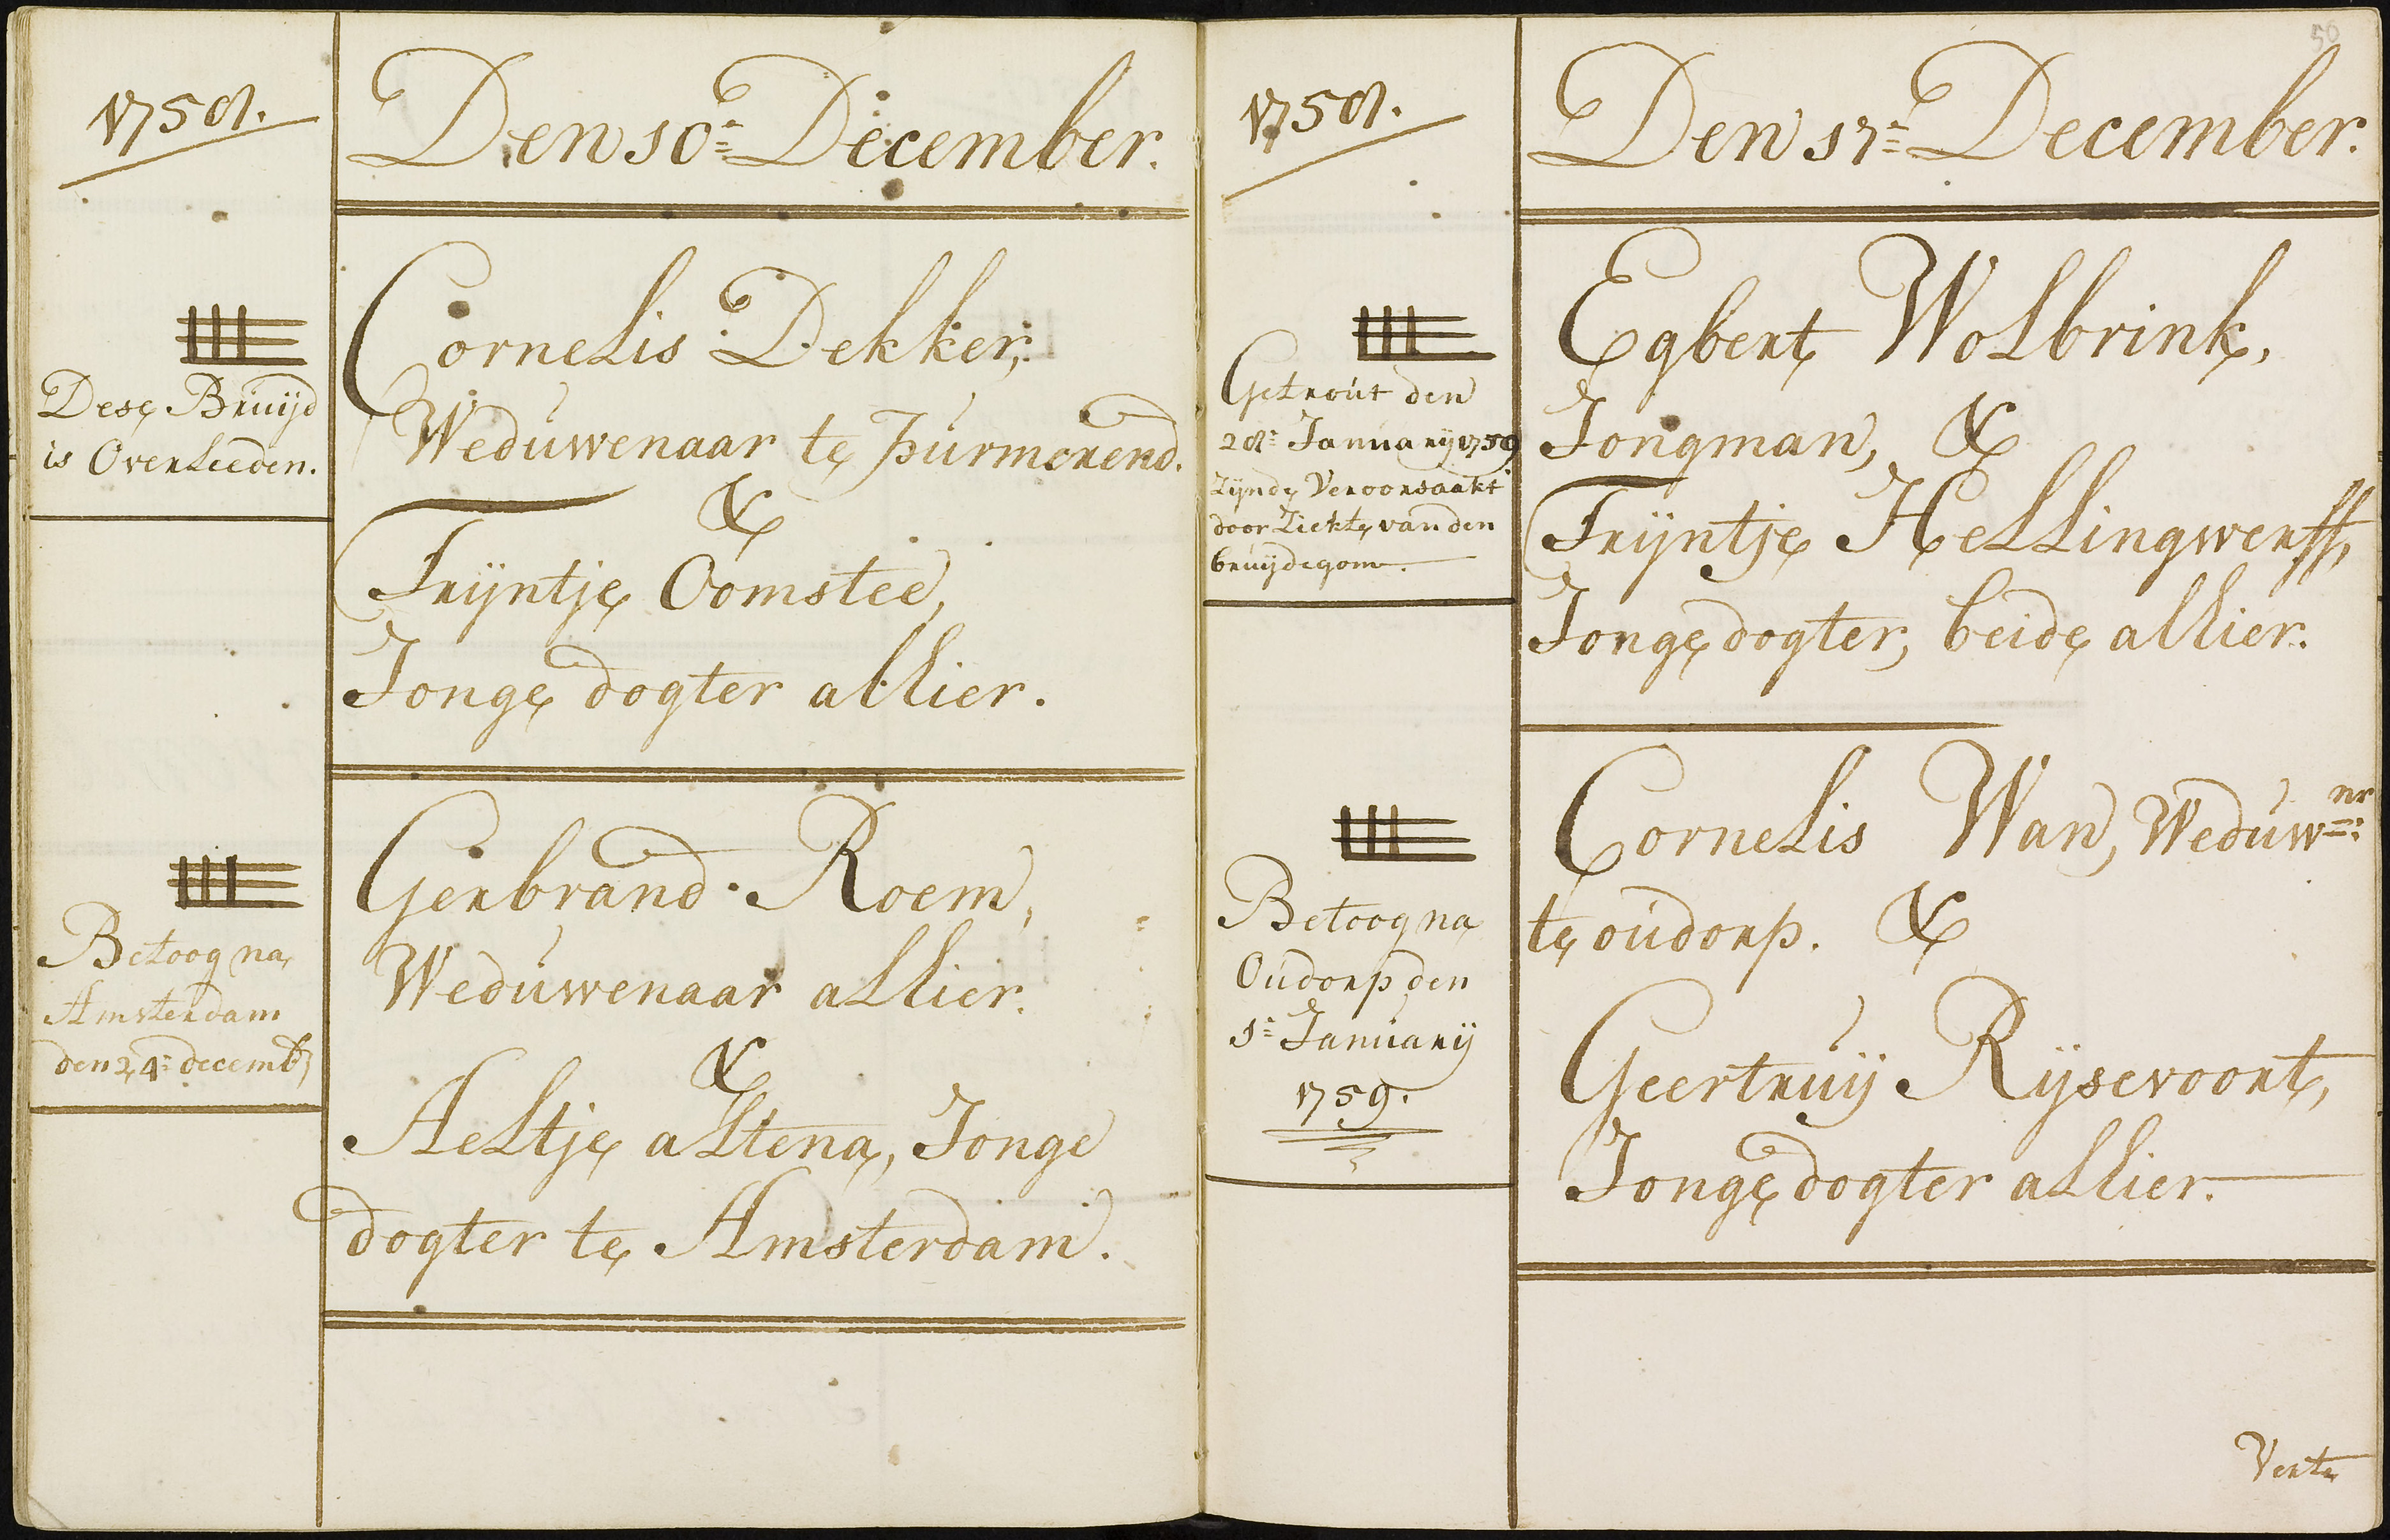 1758.
Den 10e December.
Cornelis Dekker,
Weduwenaar te Purmerend.
&
Trijntje Oomstee,
Jonge dogter alhier.
Dese Bruijd
is Overleeden.
Gerbrand Roem,
Weduwenaar alhier.
&
Aeltje altena, Jonge
dogter te Amsterdam.
Betoog na
Amsterdam
den 24e decembr
50
1758.
Den 17e December.
Egbert Wolbrink,
Jongman, &
Trijntje Hellingwerff,
Jonge dogter, beide alhier.
Getrout den
28e Januarij 1759
Zijnde Veroorsaakt
door Ziekte van den
bruijdegom.
Cornelis Wan, Weduwnr
te oudorp. &
Geertruij Rijsevoort,
Jonge dogter alhier.
Betoog na
Oudorp den
1e Januarij
1759.
Verte